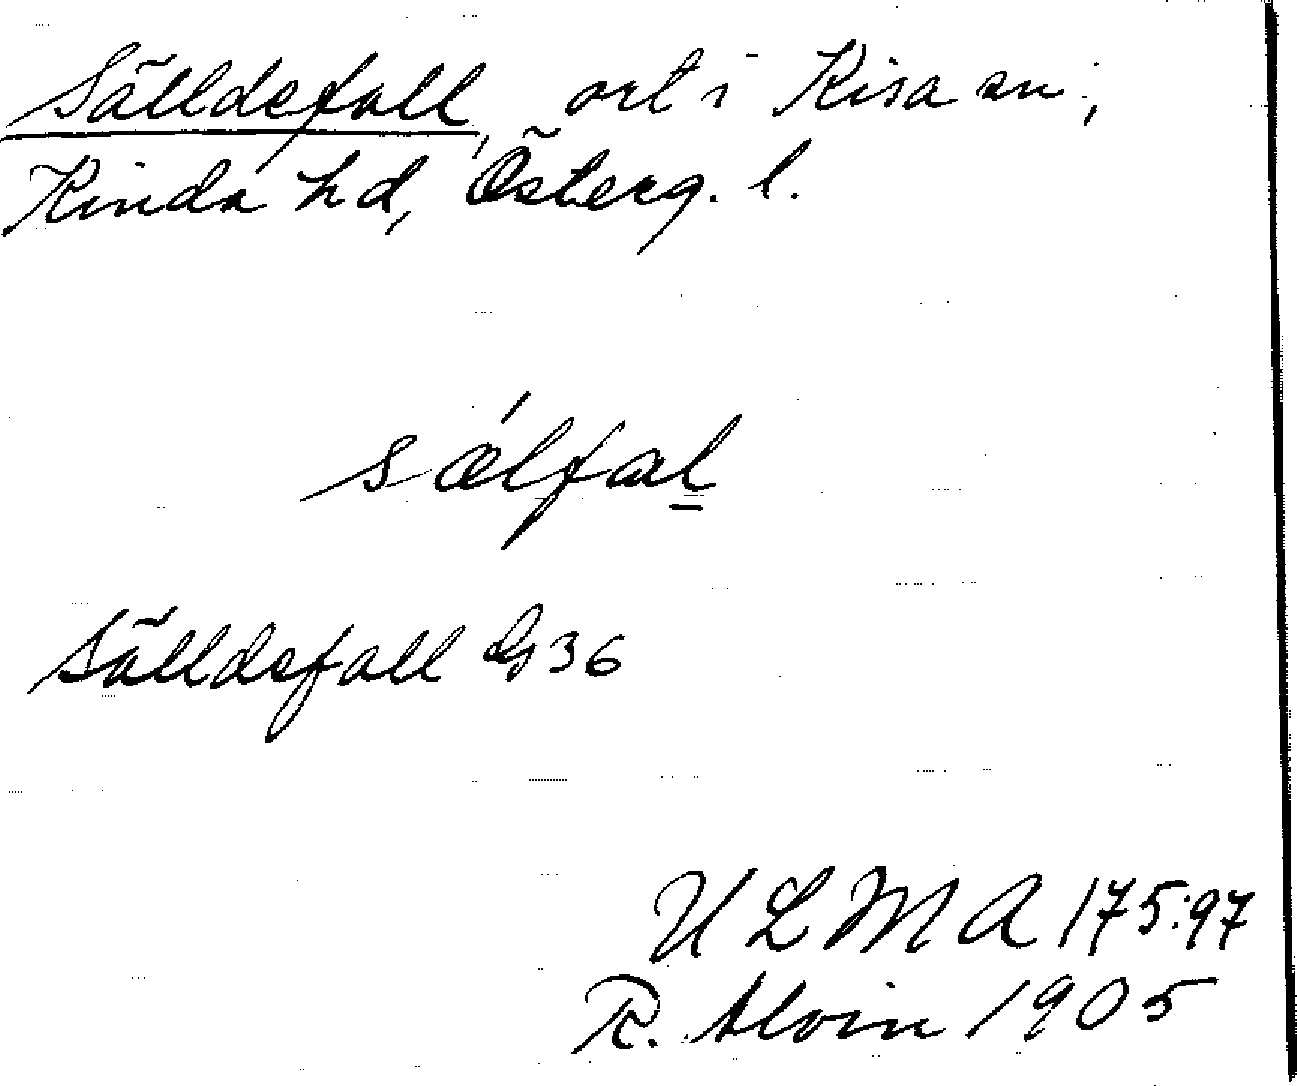 Sälldefall, ort i Kisa sn;
Kinda hd, Österg. l.
sǽlfal̲
Sälldefall G 36
ULMA 175:97
R. Alvin 1905